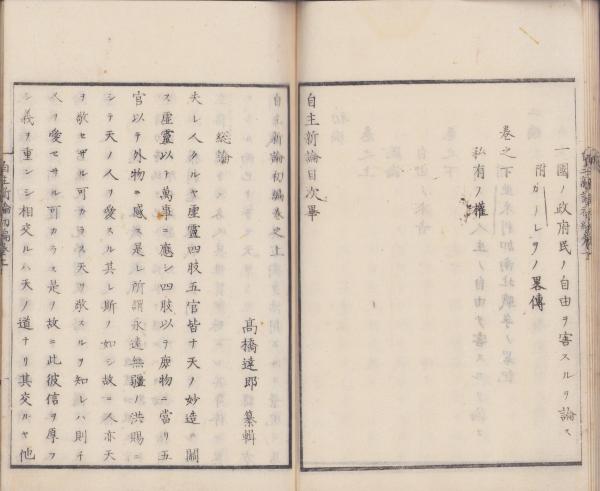 一國ノ政府民ノ自由ヲ害スルヲ論ス
附 ガーレヲノ畧傳
卷之下
私有ノ權
自主新論目次畢
自主新論初編卷之上
高橋達郎 纂輯
總論
夫レ人タルヤ虛靈四肢五官皆ナ天ノ妙造ニ關
ス虛靈以テ萬事ニ應シ四肢以テ庶物ニ當リ五
官以テ外物ニ感ス是レ所謂永遠無疆ノ洪賜ニ
シテ天ノ人ヲ愛スル其レ斯ノ如シ故ニ人亦天
ヲ敬セサル可カラス天ヲ敬スルヲ知レハ則チ
人ヲ愛セサル可カラス是ノ故ニ此彼信ヲ厚フ
シ義ヲ重ンシ相交ルハ天ノ道ナリ其交ルヤ他
自主新論初編卷上